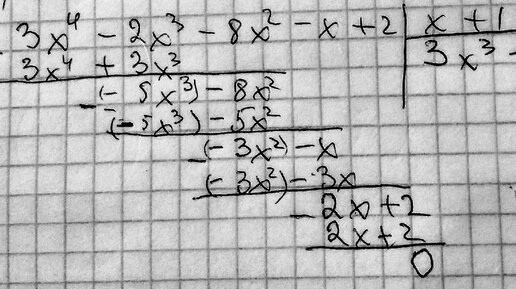 3x⁴ - 2x³ - 8x² - x + 2 | x + 1
3x⁴ + 3x³ | 3x³ -
-(- 5x³) - 8x²
(- 5x³) - 5x²
-(- 3x²) - x
(- 3x²) - 3x
- 2x + 2
2x + 2
0